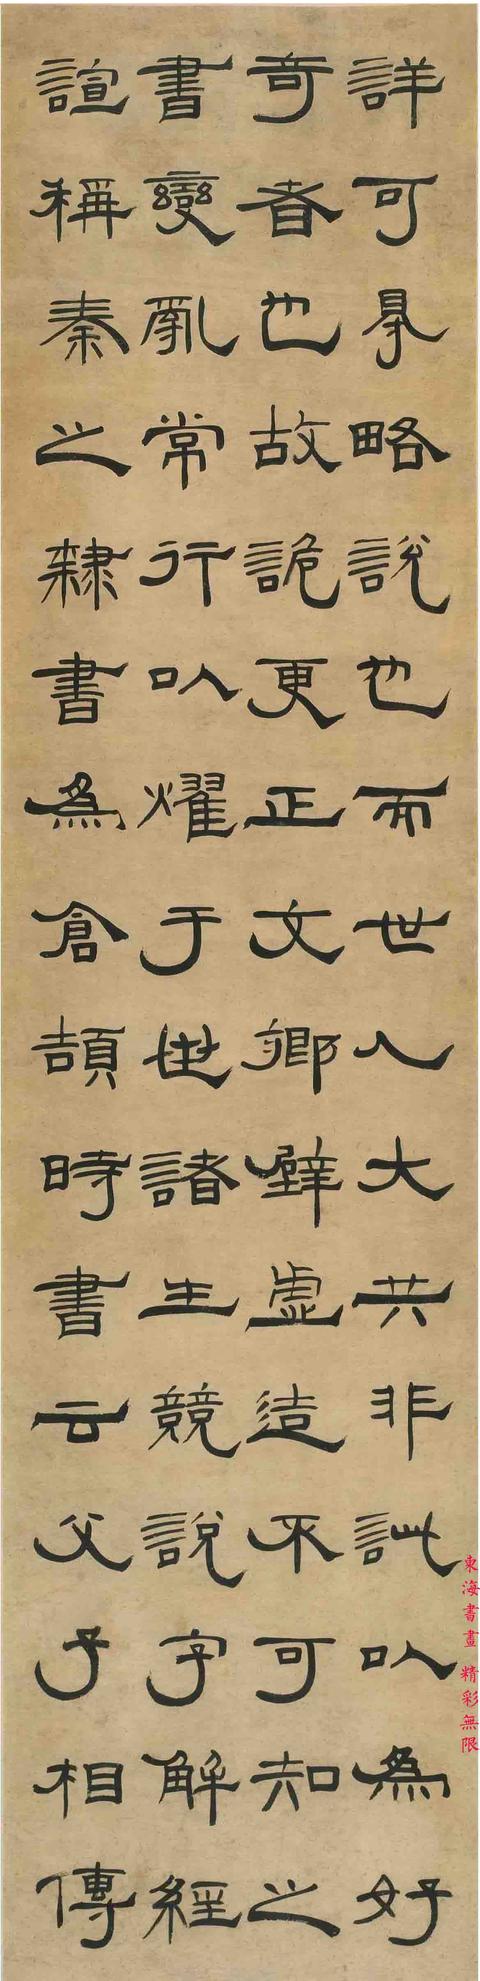 詳可㝵略說也而世人大共非訿以為好
奇者也故詭更正文鄉壁虛造不可知之
書變亂常行以燿于世諸生競說字解經
諠稱秦之隸書為倉頡時書云父子相傳
東海書畫 精彩無限